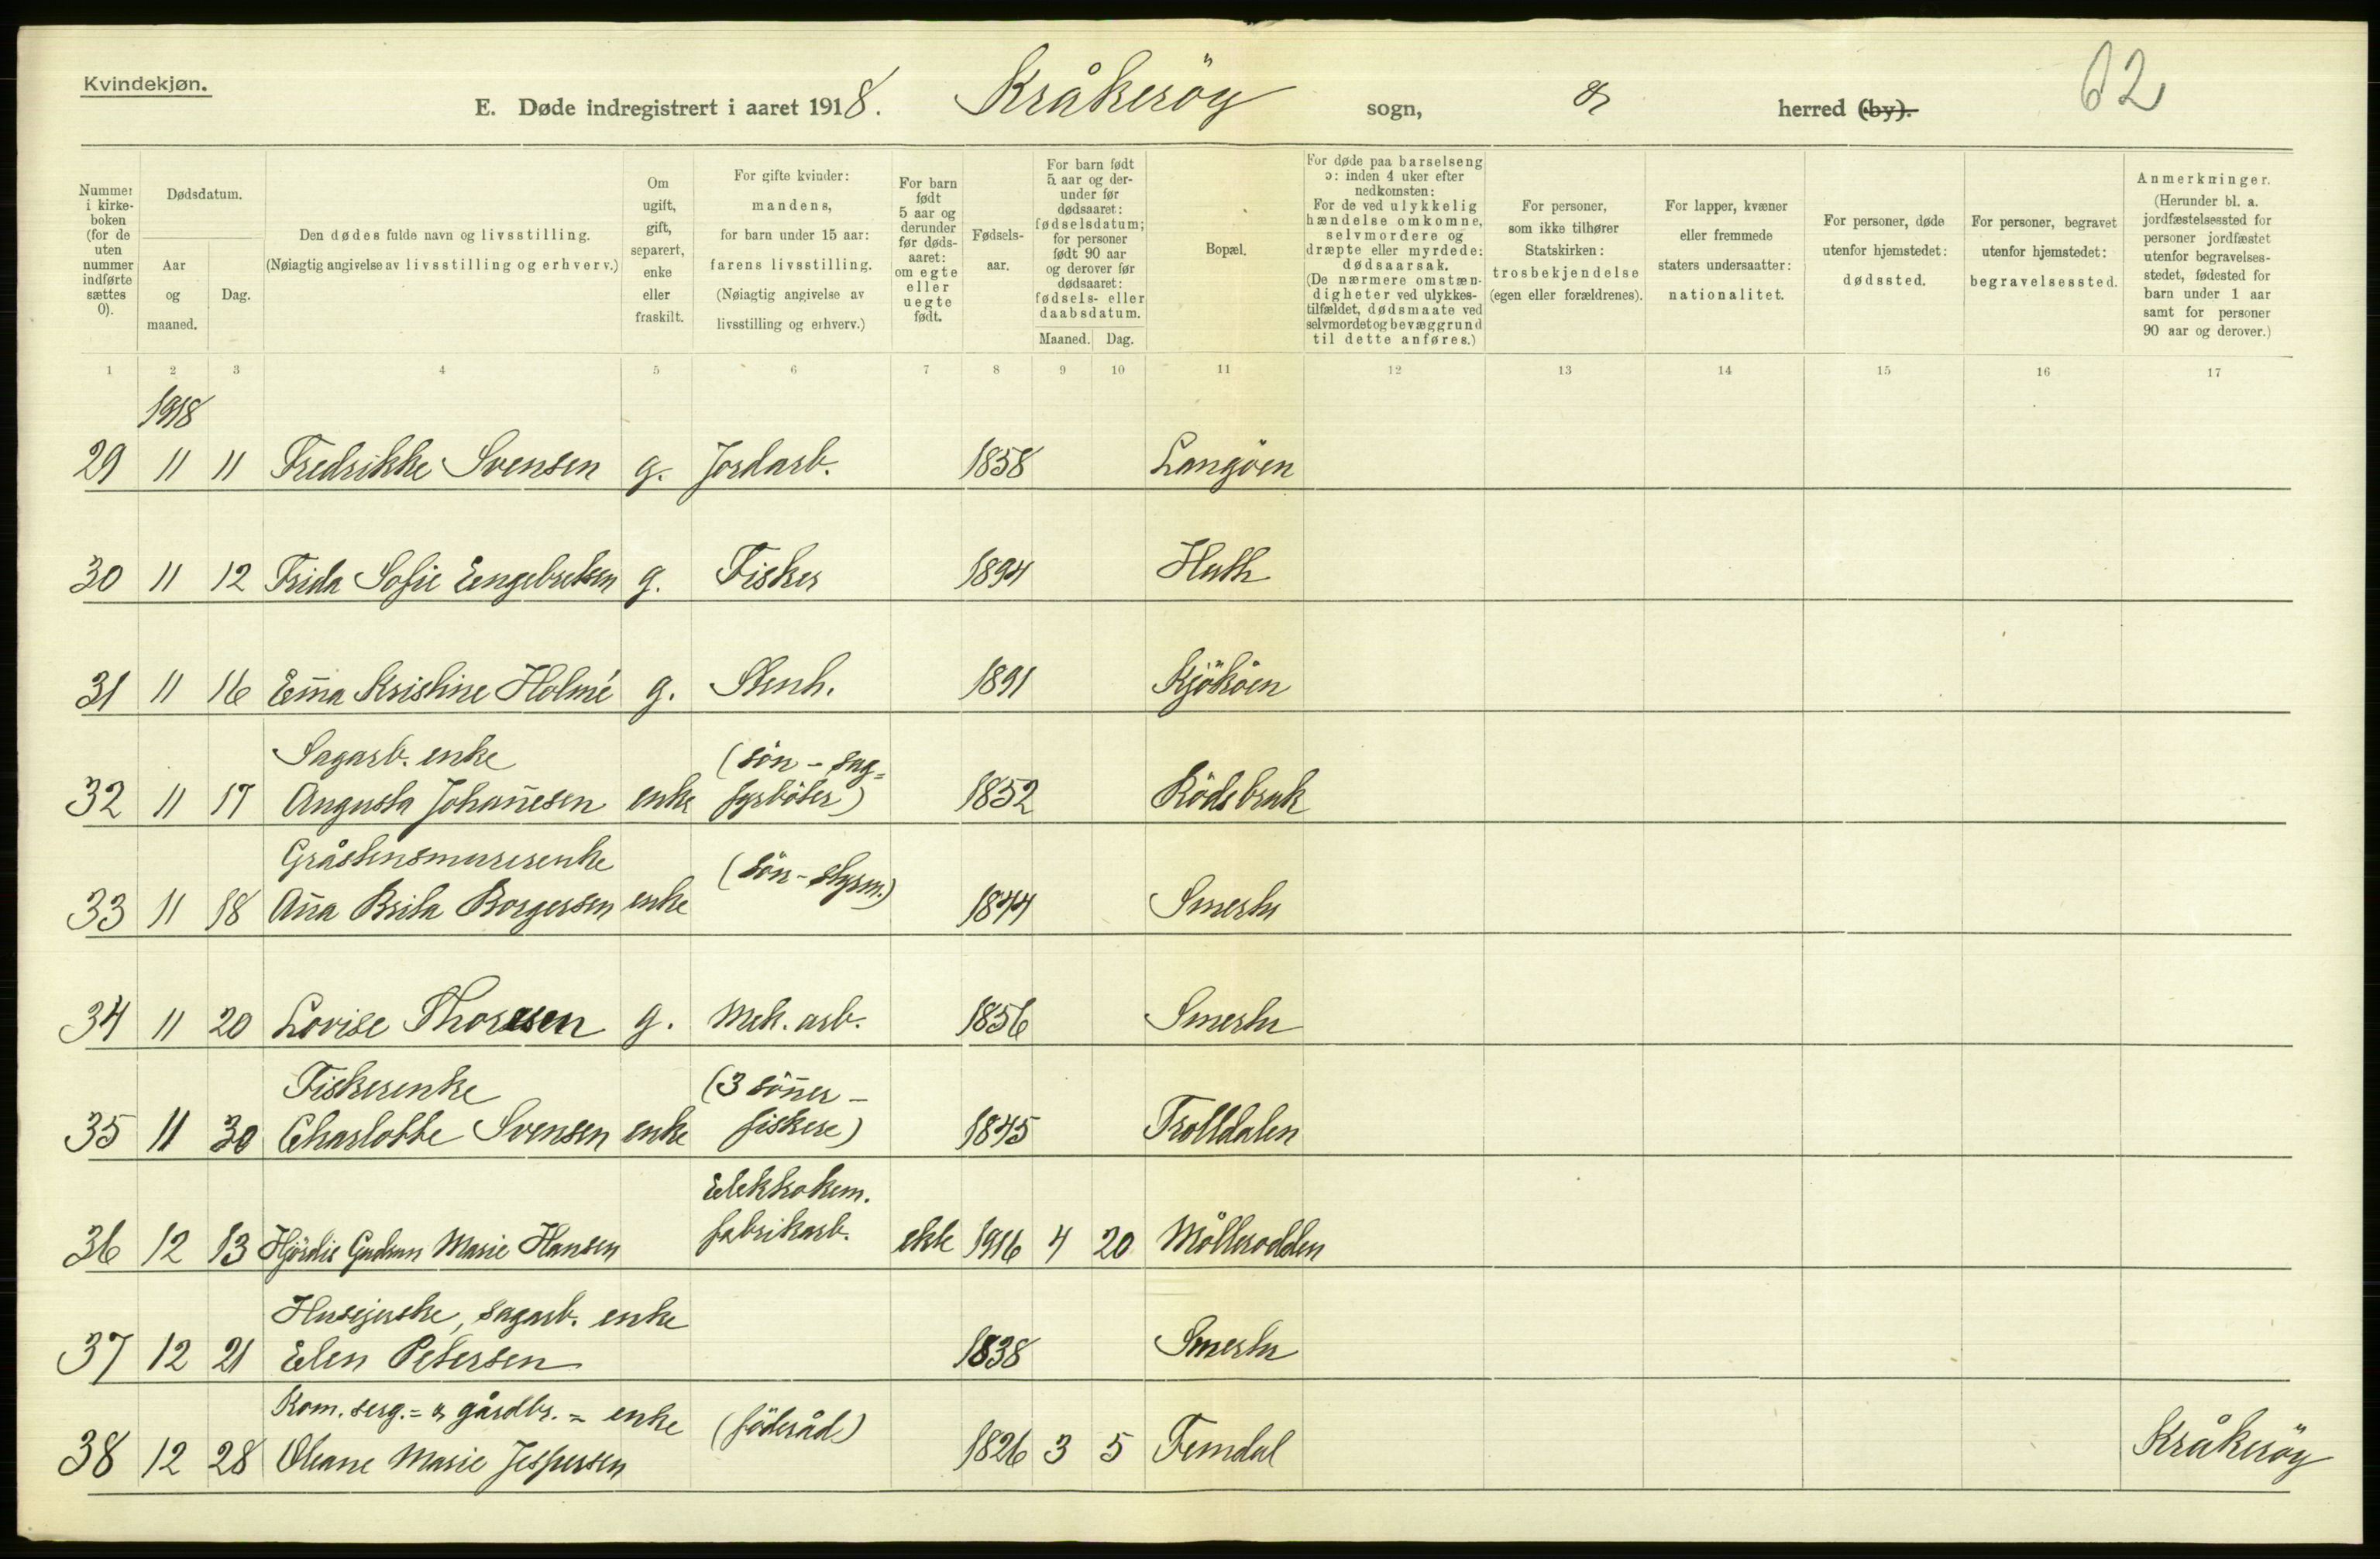 Kvindekjøn.
62
E. Døde indregistrert i aaret 1918. Kråkeröy sogn, & herred (by).
Nummer i kirkeboken (for de uten nummer indførte sættes 0).
Dødsdatum.
Aar og maaned.
Dag.
Den dødes fulde navn og livsstilling.
(Nøiagtig angivelse av livsstilling og erhverv.)
Om ugift, gift, separert, enke eller fraskilt.
For gifte kvinder: mandens, for barn under 15 aar: farens livsstilling. (Nøiagtig angivelse av livsstilling og erhverv.)
For barn født 5 aar og derunder før dødsaaret: om egte eller uegte født.
Fødselsaar.
For barn født 5 aar og derunder før dødsaaret: fødselsdatum; for personer født 90 aar og derover før dødsaaret: fødsels- eller daabsdatum.
Maaned. Dag.
Bopæl.
For døde paa barselseng ɔ: inden 4 uker efter nedkomsten: For de ved ulykkelig hændelse omkomne, selvmordere og dræpte eller myrdede: dødsaarsak. (De nærmere omstændigheter ved ulykkestilfældet, dødsmaate ved selvmordet og bevæggrund til dette anføres.)
For personer, som ikke tilhører Statskirken: trosbekjendelse (egen eller forældrenes).
For lapper, kvæner eller fremmede staters undersaatter: nationalitet.
For personer, døde utenfor hjemstedet: dødssted.
For personer, begravet utenfor hjemstedet: begravelsessted.
Anmerkninger. (Herunder bl. a. jordfæstelsessted for personer jordfæstet utenfor begravelsesstedet, fødested for barn under 1 aar samt for personer 90 aar og derover.)
1 2 3 4 5 6 7 8 9 10 11 12 13 14 15 16 17
1918
29 11 11 Fredrikke Svensen g. Jordarb. 1858 Langöen
30 11 12 Frida Sofie Engebretsen g. Fisker 1894 Huth
31 11 16 Em̄a Kristine Holmé g. Stenh. 1891 Kjököen
Sagarb. enke (sön - sag=
32 11 17 Augusta Johan̄esen enke fyrböter) 1852 Rödsbruk
Gråstensmurerenke (sön - styrm.)
33 11 18 An̄a Brita Borgersen enke 1844 Smertu
34 11 20 Lovise Thoresen g. Mek. arb. 1856 Smertu
Fiskerenke (3 sön̄er -
35 11 30 Charlotte Svensen enke fiskere) 1845 Trolldalen
Elektrokem.
36 12 13 Hjördis Gudrun Marie Hansen fabrikarb. ekte 1916 4 20 Möllerodden
Huseierske, sagarb. enke
37 12 21 Elen Petersen 1838 Smertu
Kom. serg.= & gårdbr. = enke (föderåd)
38 12 28 Oleane Marie Jespersen 1826 3 5 Femdal Kråkeröy